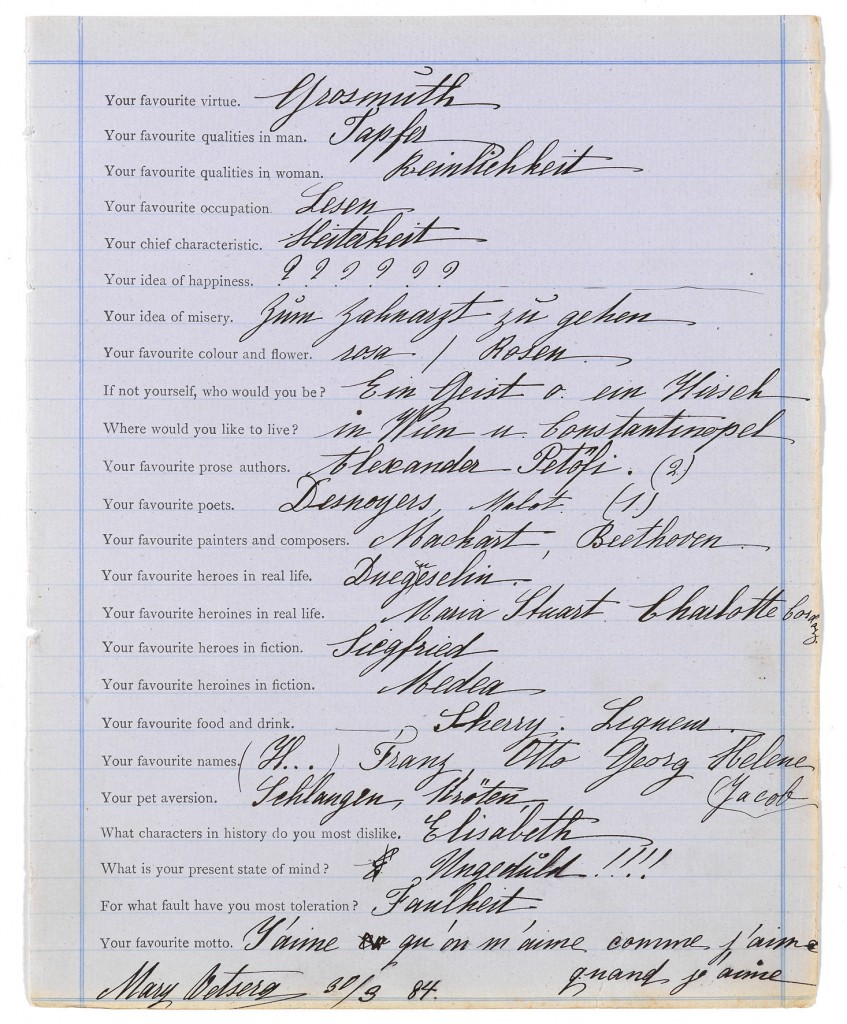 Your favourite virtue. Grosmuth
Your favourite qualities in man. Tapfer
Your favourite qualities in woman. Reinlichkeit
Your favourite occupation Lesen
Your chief characteristic. Heiterkeit
Your idea of happiness. ? ? ? ? ? ?
Your idea of misery. Zum Zahnarzt zu gehen
Your favourite colour and flower. rosa / Rosen
If not yourself, who would you be? Ein Geist o. ein Hirsch
Where would you like to live? in Wien u. Constantinopel
Your favourite prose authors. Alexander Petöfi. (2)
Your favourite poets. Desnoyers, Malot. (1.)
Your favourite painters and composers. Mackart, Beethoven
Your favourite heroes in real life.
Your favourite heroines in real life. Maria Stuart Charlotte Corday
Your favourite heroes in fiction. Siegfried
Your favourite heroines in fiction. Medea
Your favourite food and drink. Sherry. Liqueur
Your favourite names. (H...) Franz, Otto Georg Helene
Your pet aversion. Schlangen, Kröten, (Jacob
What characters in history do you most dislike. Elisabeth
What is your present state of mind? Ungeduld !!!!
For what fault have you most toleration? Faulheit
Your favourite motto. J'aime qu'on m'aime comme j'aime
quand j'aime
Mary 30/3 84.